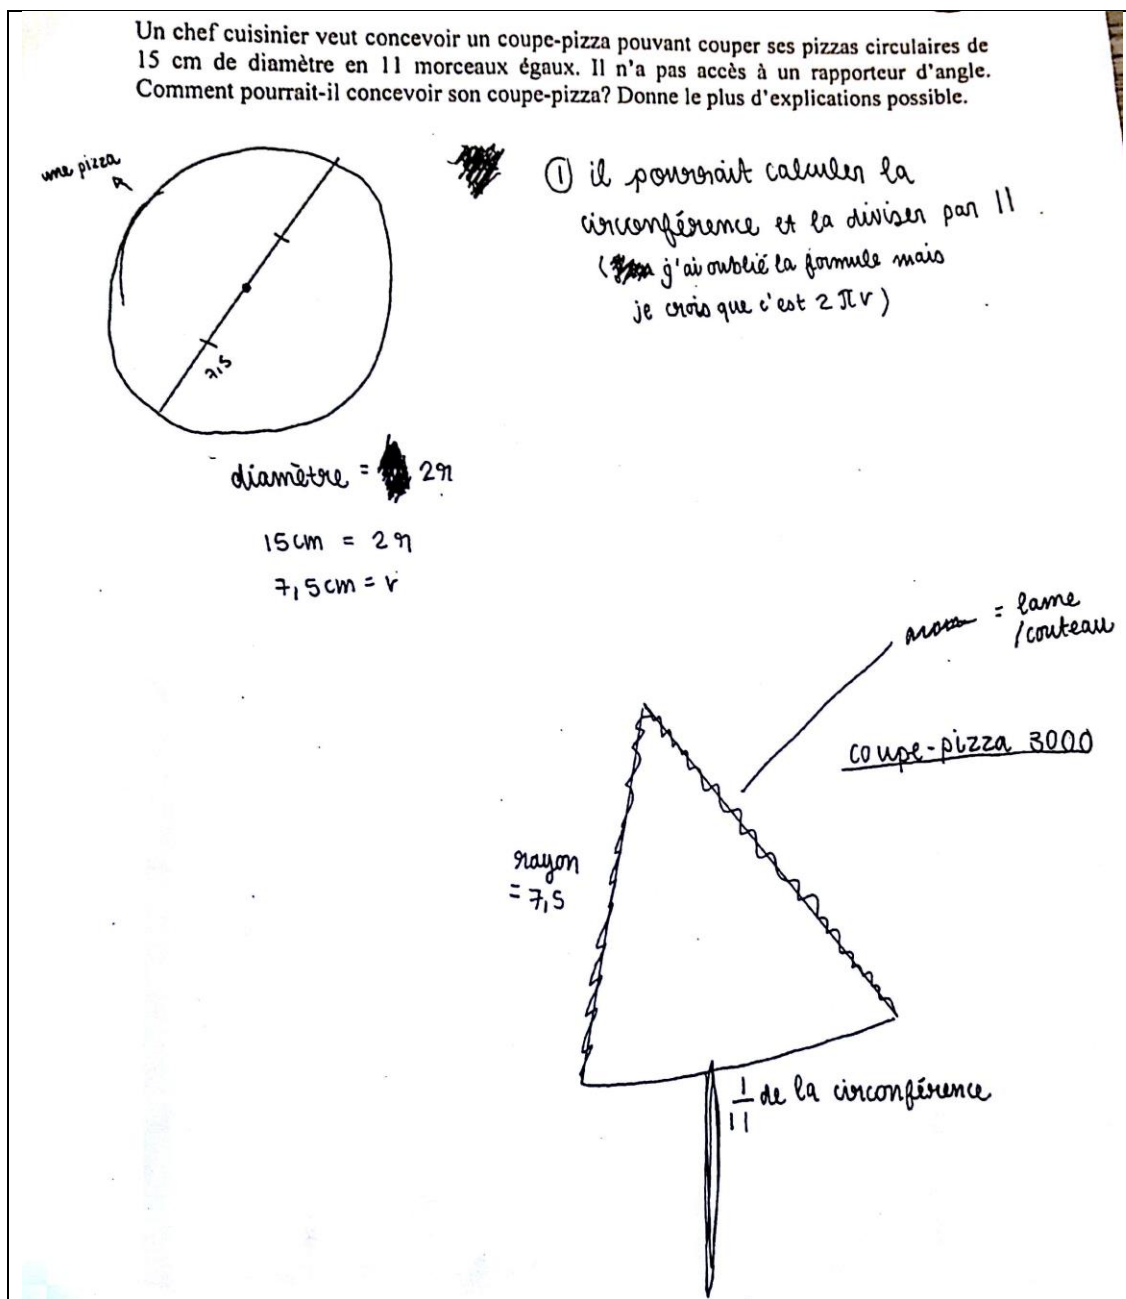 Un chef cuisinier veut concevoir un coupe-pizza pouvant couper ses pizzas circulaires de
15 cm de diamètre en 11 morceaux égaux. Il n'a pas accès à un rapporteur d'angle.
Comment pourrait-il concevoir son coupe-pizza? Donne le plus d'explications possible.
une pizza
① il pourrait calculer la
circonférence et la diviser par 11.
( j'ai oublié la formule mais
je crois que c'est 2 π r)
7,5
diamètre = 2r
15 cm = 2r
7,5 cm = r
= lame
/couteau
coupe-pizza 3000
rayon
= 7,5
1/11 de la circonférence